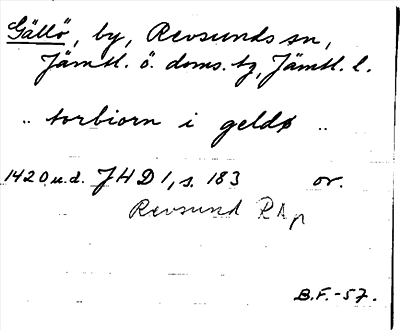 Gällö, by, Revsunds sn,
Jämtl. ö. doms. tg, Jämtl. l.
.. torbiorn i geldø ..
1420 u.d. JHD 1, s. 183 or.
Revsund RAp
B.F.-57.